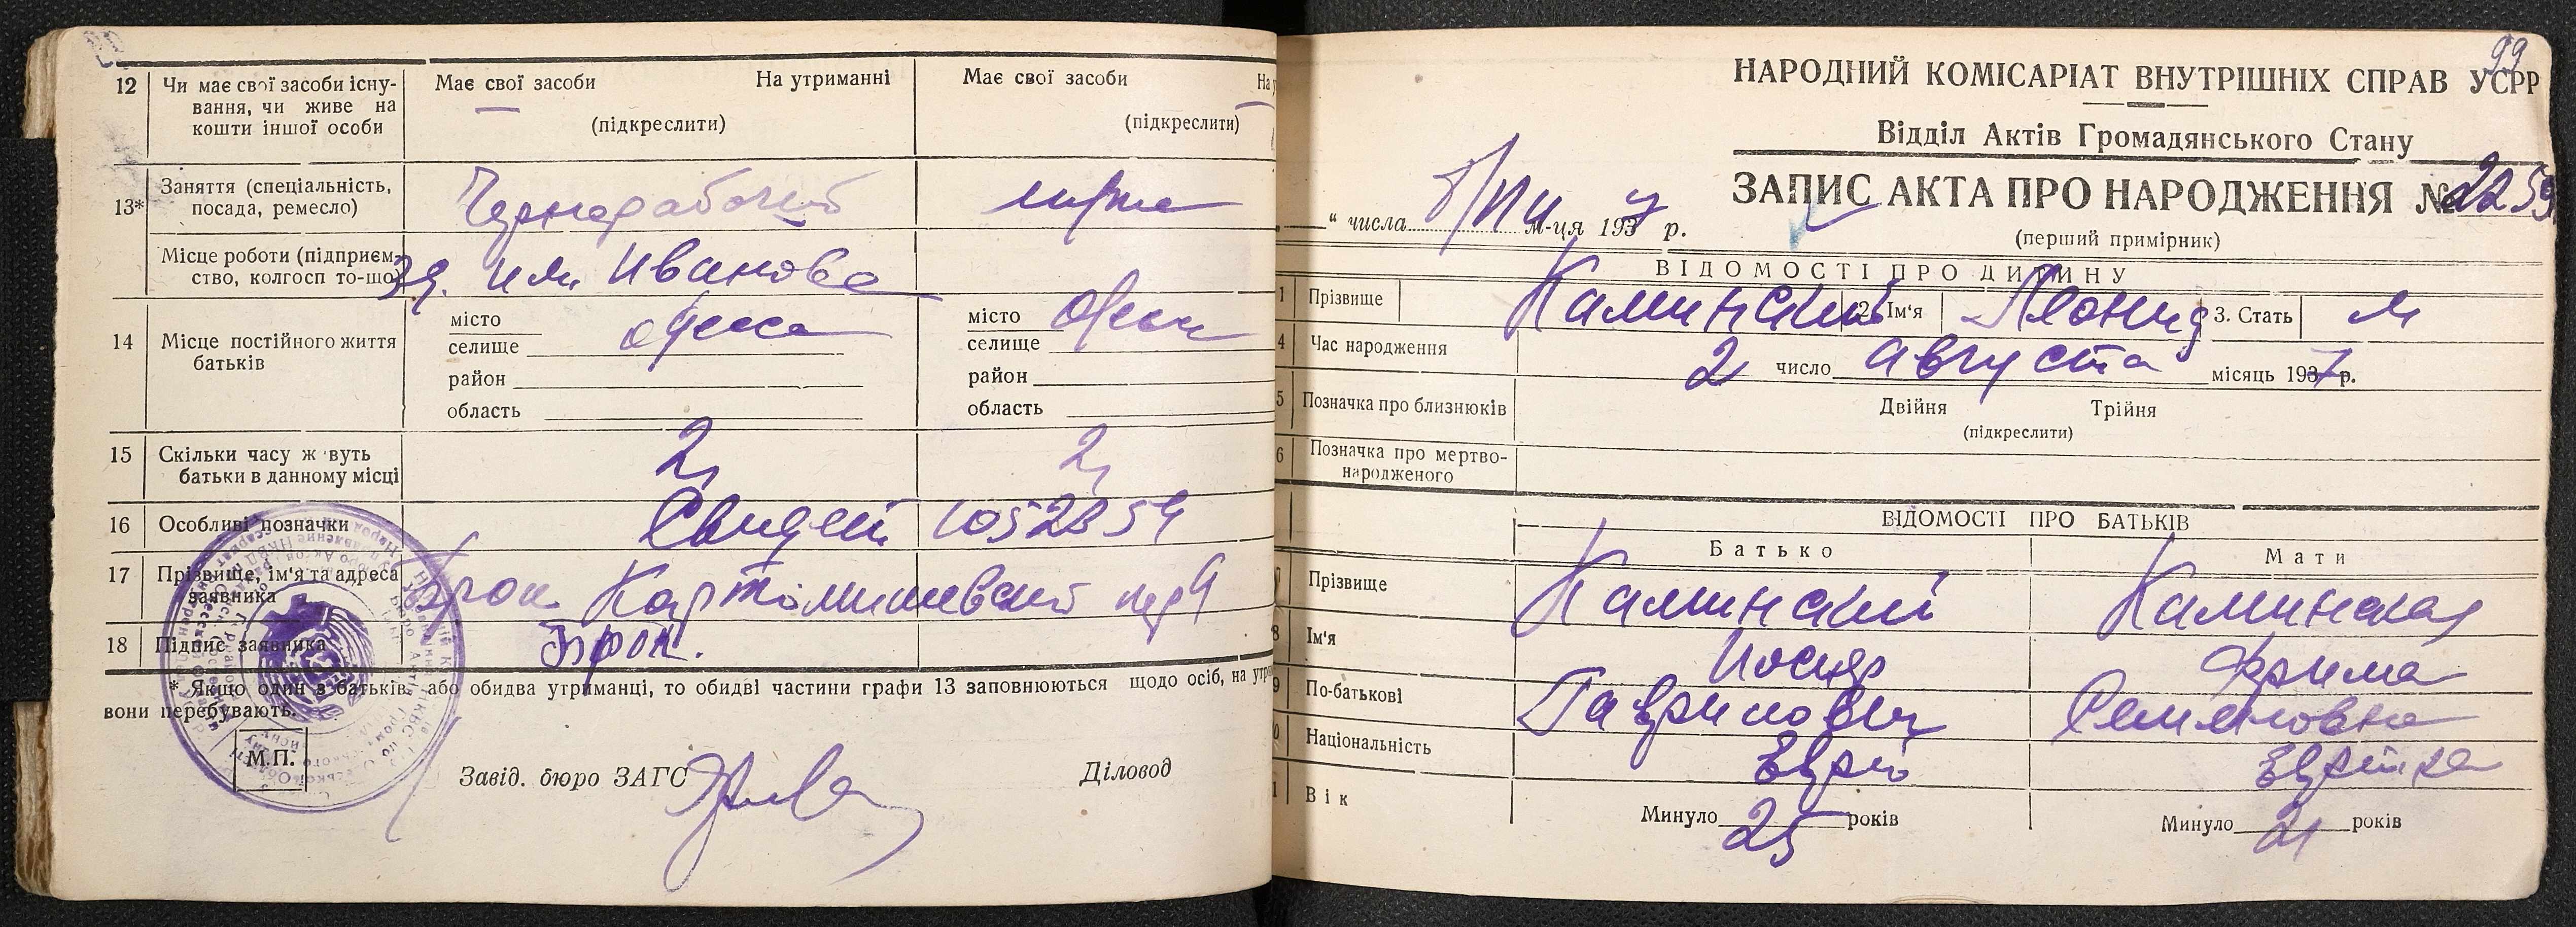 12 Чи має свої засоби існу-
вання, чи живе на
кошти іншої особи
Має свої засоби На утриманні
(підкреслити)
Має свої засоби
(підкреслити)
13* Заняття (спеціальність,
посада, ремесло)
Чернорабочий
Місце роботи (підприєм-
ство, колгосп то-що)
им. Иванова
14 Місце постійного життя
батьків
місто Одесса
селище
район
область
місто Одесса
селище
район
область
15 Скільки часу ж вуть
батьки в данному місці
2
2
16 Особливі позначки
17 Прізвище, ім'я та адреса
заявника
Брон
18 Підпис заявника
Брон.
* Якщо один з батьків, або обидва утриманці, то обидві частини графи 13 заповнюються щодо осіб, на
вони перебувають.
М.П.
Завід. бюро ЗАГС
Діловод
99
НАРОДНИЙ КОМІСАРІАТ ВНУТРІШНІХ СПРАВ УСРР
Відділ Актів Громадянського Стану
ЗАПИС АКТА ПРО НАРОДЖЕННЯ № 2259
" числа м-ця 1937 р.
(перший примірник)
ВІДОМОСТІ ПРО ДИТИНУ
1 Прізвище Каминский 2. Ім'я Леонид 3. Стать м
4 Час народження 2 число Августа місяць 1937 р.
5 Позначка про близнюків Двійня Трійня
(підкреслити)
6 Позначка про мертво-
народженого
ВІДОМОСТІ ПРО БАТЬКІВ
Батько Мати
7 Прізвище Каминский Каминская
8 Ім'я Иосиф Фрима
9 По-батькові Гаврилович Семеновна
10 Національність Еврей Еврейка
11 Вік Минуло 25 років Минуло 21 років